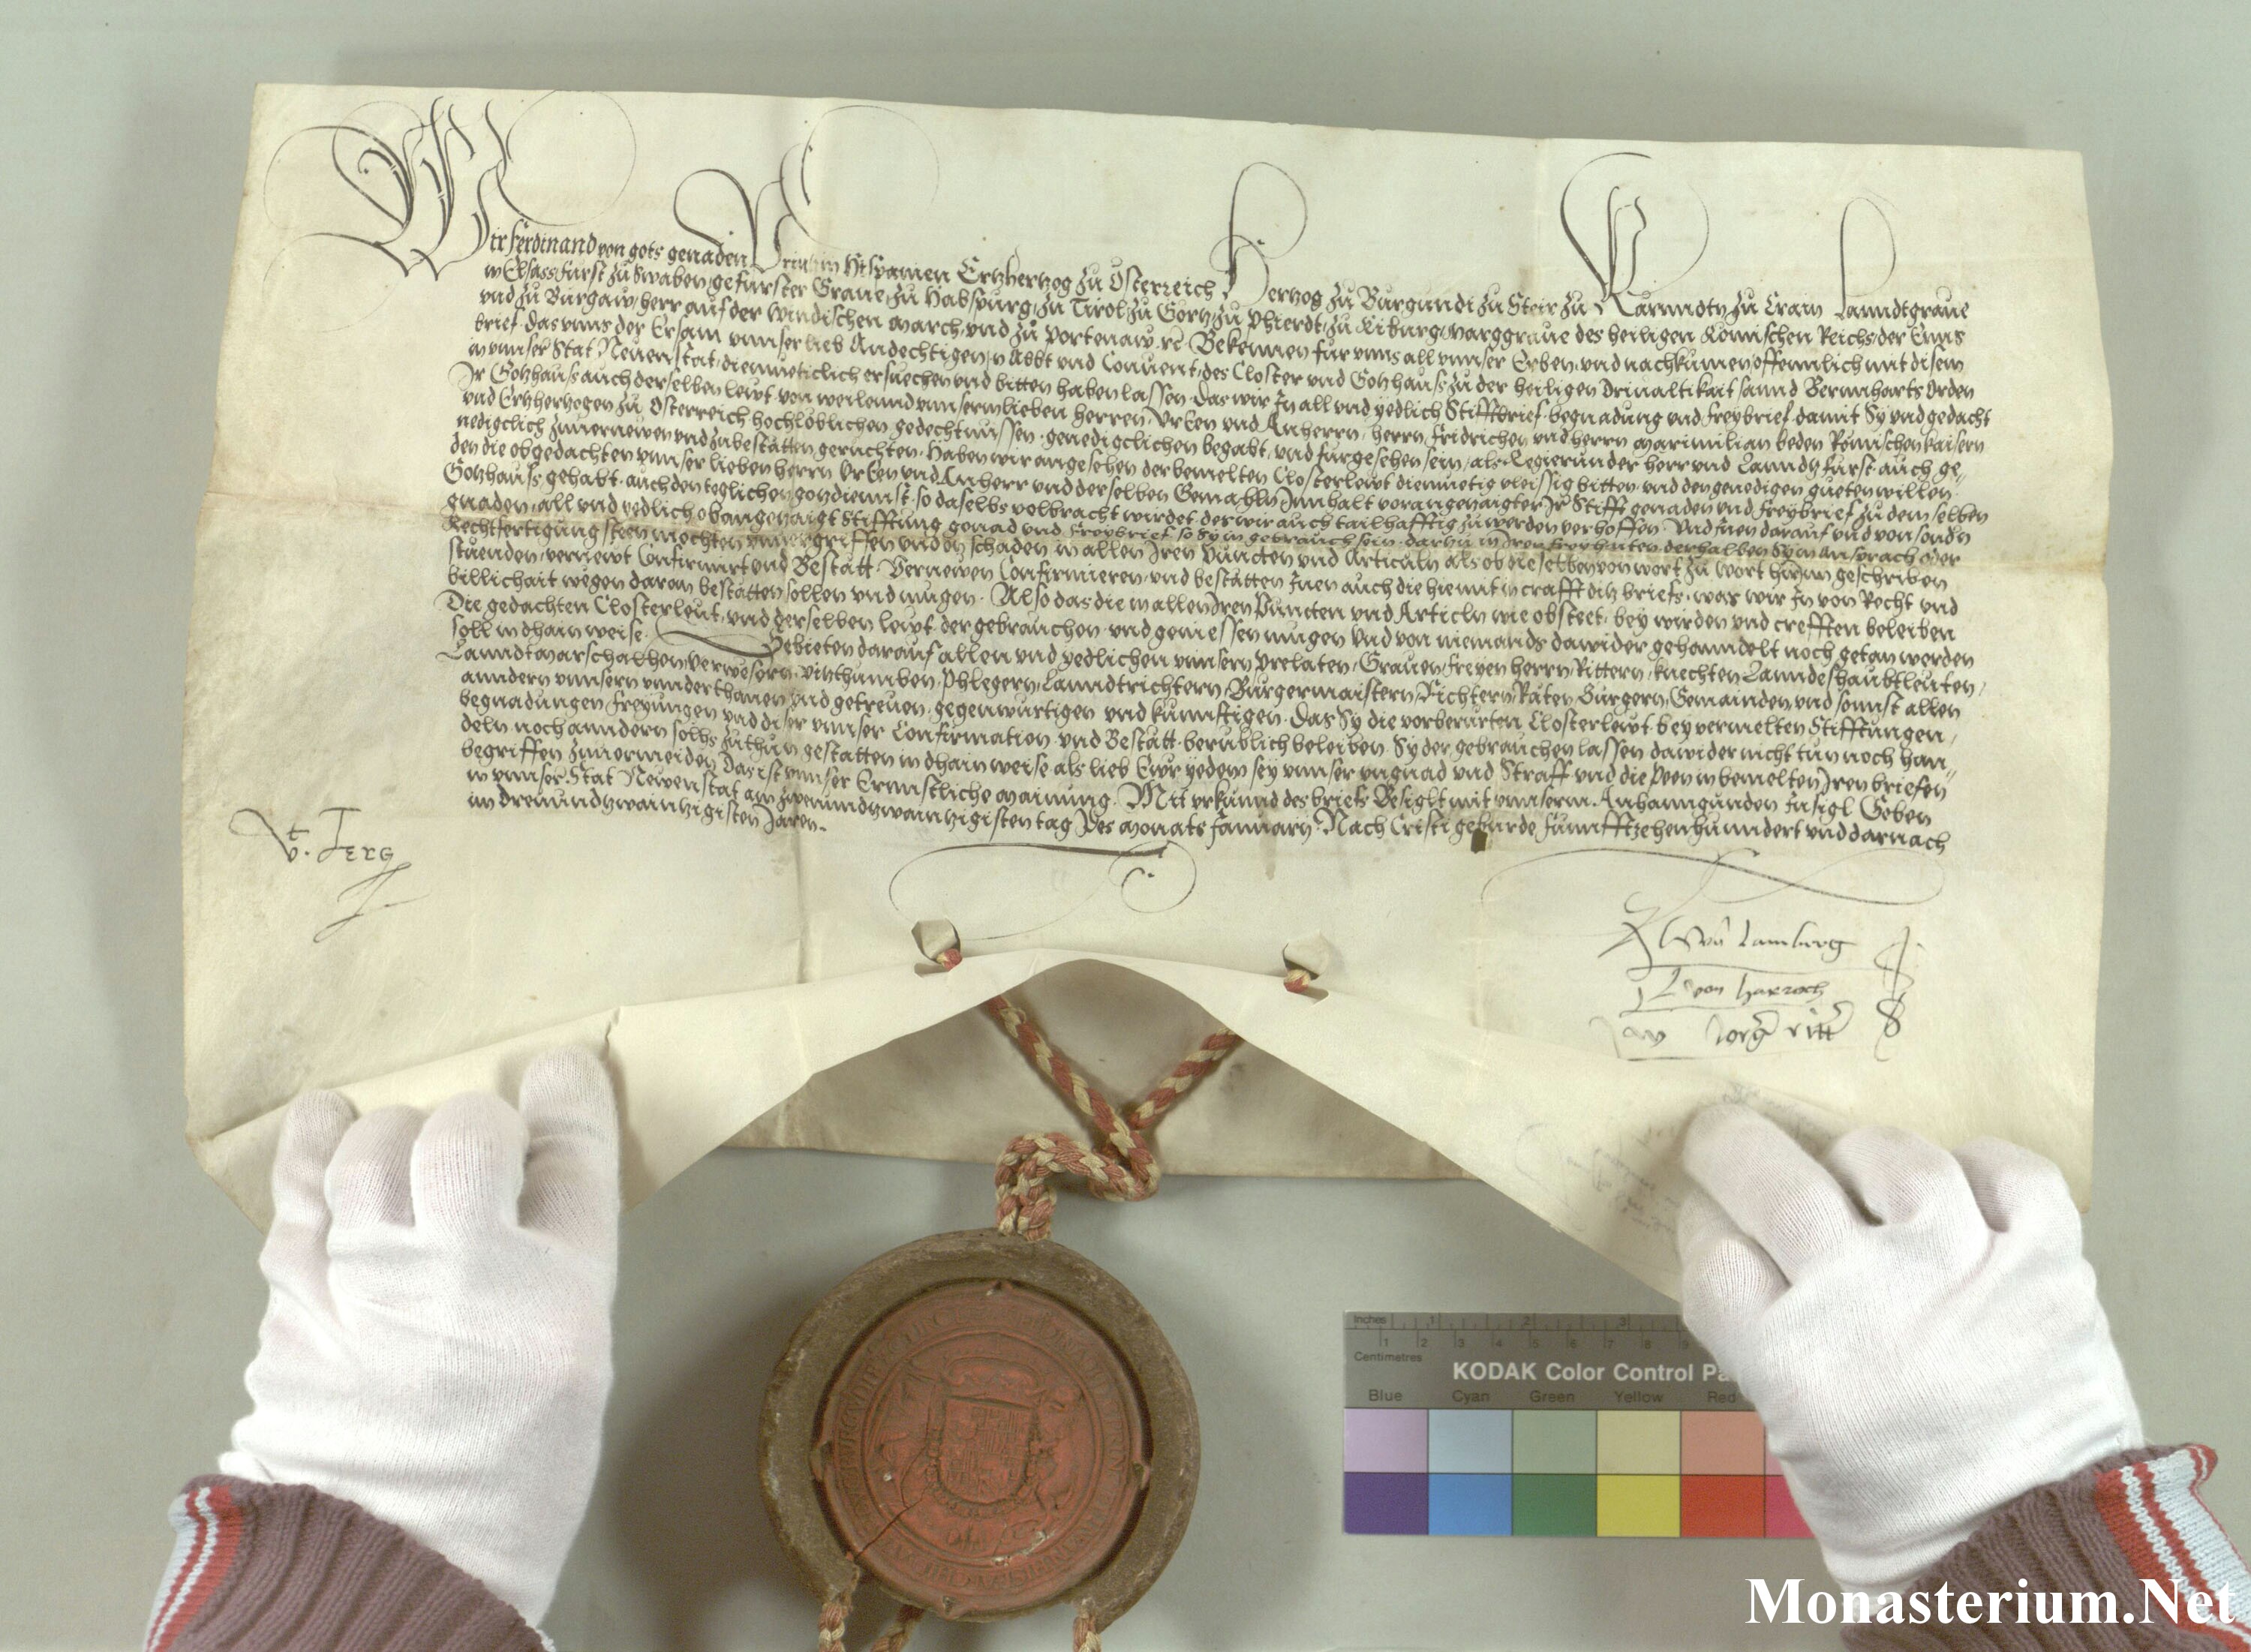 Wir Ferdinand von gots genaden Printz in Hispanien Ertzhertzog zu Osterreich Hertzog zu Burgundi zu Steir zu Karnndtn zu Crain Lanndtgraue
in Elsass Furst zu Swaben gefurster Graue zu Habspurg zu Tirol zu Gortz zu Phierdt zu Kiburg Marggraue des heiligen Romischen Reichs der Enns
vnd zu Burgaw herr auf der Windischen march vnd zu Portenaw rc Bekennen fur vnns all vnnser Erben vnd nachkumen offennlich mit disem
brief das vnns der Ersam vnnser lieb Andechtigen n Abbt vnd Conuent des Closter vnd Gotzhauss zu der heiligen Driualtikait sannd Bernnharts Orden
in vnnser Stat Neuenstat diemueticlich ersuechen vnd bitten haben lassen Das wir Jn all vnd yedlich Stifftbrief begnadung vnd freybrief damit Sy vnd gedacht
Jr Gotzhauss auch derselben lewt von weilennd vnnserm lieben herren Vrēn vnd Anherrn herrn Fridrichen vnd herrn Maximilian beden Römischen kaisern
vnd Ertzhertzogen zu Osterreich hochloblichen gedechtnussen genedigclichen begabt vnd furgesehen sein als Regierunder herr vnd Lanndsfurst auch ge„
nedigclich zuuernewen vnd zubestatten geruchten Haben wir angesehen der bemelten Closterlewt diemuetig vleissig bitten vnd den genedigen gueten willen
den die obgedachten vnnser lieben herrn Vrēn vnd Anherr vnd derselben Gemahln Jnnhalt vorangezaigter Jr Stifft genaden vnd freybrief zu dem selben
Gotzhauss gehabt auch den teglichen gotzdiennst so daselbs volbracht wirdet der wir auch tailhafftig zu werden verhoffen Vnd Jnen darauf vnd von sondn
gnaden all vnd yedlich obangezaigt Stifftung genad vnd freybrief so Sy in gebrauch sein darzu in Jren freyhaiten derhalben Sy in ansprach oder
Rechtfertigung steen mochten vnuergriffen vnd on schaden in allen Jren Puncten vnd Articuln als ob die selben von wort zu wort hierinn geschriben
stuenden vernewt Confirmirt vnd Bestatt Vernewen Confirmieren vnd bestatten Jnen auch die hiemit in crafft ditz briefs was wir Jn von Recht vnd
billichait wegen daran bestatten sollen vnd mugen Also das die in allen Jren Puncten vnd Articln wie obsteet bey wirden vnd crefften beleiben
Die gedachten Closterleut vnd derselben lewt der gebrauchen vnd geniessen mugen vnd von niemands dawider gehanndelt noch getan werden
soll in dhain weise Gebieten darauf allen vnd yedlichen vnnsern Prelaten Grauen freyen herrn Rittern knechten Lanndeshaubtleuten
Lanndtmarschalhen Verwesern Vitzthumben Phlegern Lanndtrichtern Burgermaistern Richtern Räten Burgern Gemainden vnd sonnst allen
anndern vnnsern vnnderthanen vnd getreuen gegenwurtigen vnd kunnftigen Das Sy die vorberurten Closterlewt bey vermelten Stifftungen
begnadungen freyungen vnd diser vnnser Confirmation vnd Bestatt berublich beleiben Sy der gebrauchen lassen dawider nicht tun noch han„
deln noch anndern solhs zuthun gestatten in dhain weise als lieb Ewr yedem sey vnnser vngnad vnd Straff vnd die Peen in bemelten Jren briefen
begriffen zuuermeiden Das ist vnnser Ernnstliche mainung Mit vrkunnd des briefs Besiglt mit vnnserm Anhanngunden Jnsigl Geben
in vnnser Stat Newenstat am Zwenundzwaintzigisten tag Des monats Januarij Nach Cristi geburde funnfftzehenhunndert vnd darnach
im dreiundzwaintzigisten Jaren
von Lamberg
L von harrach
Jorg ritt
KODAK Color Control Pa
Inches 1 2 3
1 2 3 4 5 6 7 8 9
Centimetres
Blue Cyan Green Yellow Red
Monasterium.Net